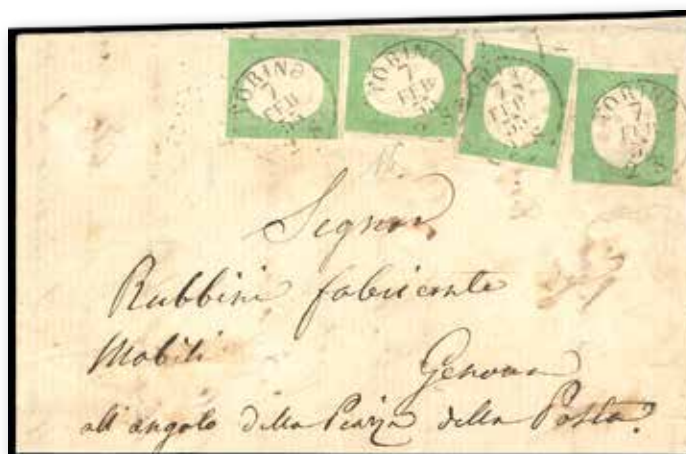 TORINO
7
FEB
55
2 S
TORINO
7
FEB
55
2 S
7
FEB
55
TORINO
7
FEB
Signor
Rubbini fabricente
Mobili
Genova
all'angolo della Piazza della Posta